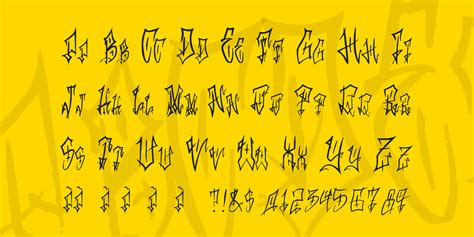 Aa Bb Cc Dd Ee Ff Gg Hh Ii
Jj Kk Ll Mm Nn Oo Pp Qq Rr
Ss Tt Uu Vv Ww Xx Yy Zz
?!&$ 0123456789